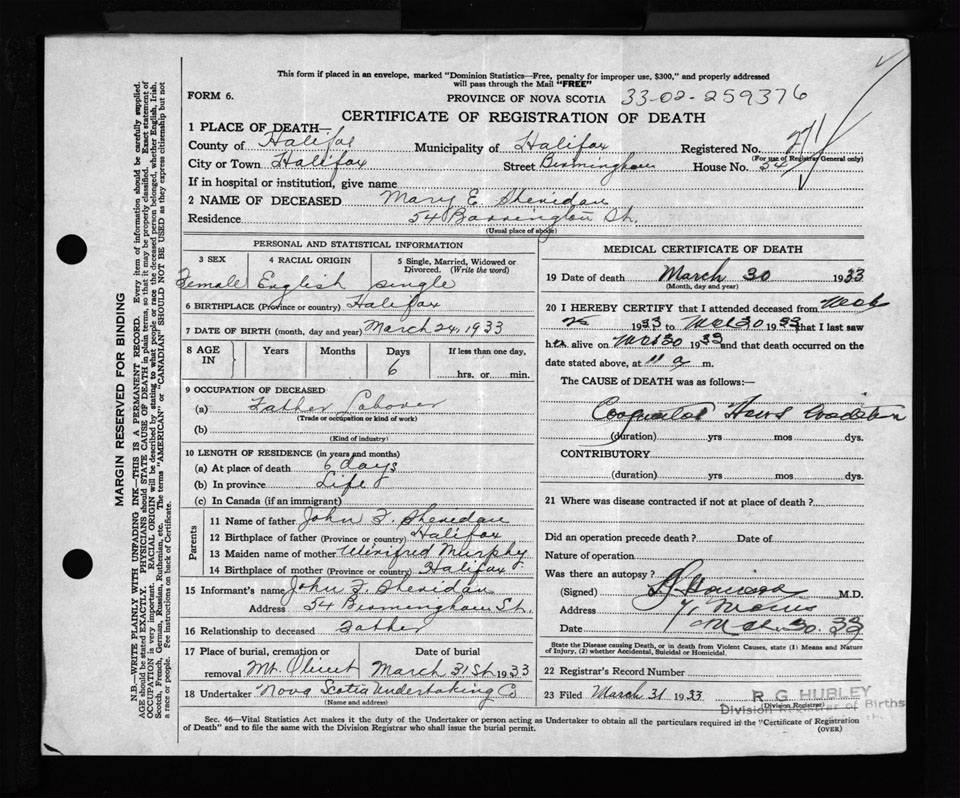 This form if placed in an envelope, marked "Dominion Statistics—Free, penalty for improper use, $300," and properly addressed
will pass through the Mail "FREE"
FORM 6.
PROVINCE OF NOVA SCOTIA 33-02-259376
CERTIFICATE OF REGISTRATION OF DEATH
1 PLACE OF DEATH—
County of Halifax Municipality of Halifax Registered No.
(For use of Registrar General only)
City or Town Halifax Street Birmingham House No. 54
If in hospital or institution, give name
2 NAME OF DECEASED Mary E. Sheridan
Residence 54 Barrington St.
(Usual place of abode)
PERSONAL AND STATISTICAL INFORMATION
3 SEX 4 RACIAL ORIGIN 5 Single, Married, Widowed or
Divorced. (Write the word)
Female English single
6 BIRTHPLACE (Province or country) Halifax
7 DATE OF BIRTH (month, day and year) March 24, 1933
8 AGE IN Years Months Days If less than one day,
6 hrs. or min.
9 OCCUPATION OF DECEASED
(a) Father Laborer
(Trade or occupation or kind of work)
(b)
(Kind of industry)
10 LENGTH OF RESIDENCE (in years and months)
(a) At place of death 6 days
(b) In province Life
(c) In Canada (if an immigrant)
Parents
11 Name of father John F. Sheridan
12 Birthplace of father (Province or country) Halifax
13 Maiden name of mother Winifred Murphy
14 Birthplace of mother (Province or country) Halifax
15 Informant's name John F. Sheridan
Address 54 Birmingham St.
16 Relationship to deceased Father
17 Place of burial, cremation or Date of burial
removal Mt. Olivet March 31st. 1933
18 Undertaker Nova Scotia Undertaking Co
(Name and address)
MEDICAL CERTIFICATE OF DEATH
19 Date of death March 30 1933
(Month, day and year)
20 I HEREBY CERTIFY that I attended deceased from
1933 to Mch 30 1933 that I last saw
h alive on Mch 30 1933 and that death occurred on the
date stated above, at 11 a m.
The CAUSE of DEATH was as follows:—
Congenital Heart Condition
(duration) yrs mos dys.
CONTRIBUTORY
(duration) yrs mos dys.
21 Where was disease contracted if not at place of death?
Did an operation precede death? Date of
Nature of operation
Was there an autopsy?
(Signed) M.D.
Address 71 Morris
Date Mch. 30. 33
State the Disease causing Death, or in death from Violent Causes, state (1) Means and Nature
of Injury, (2) whether Accidental, Suicidal or Homicidal.
22 Registrar's Record Number
23 Filed March 31 1933 R G HUBLEY
Division Registrar of Births
(Division Registrar)
Sec. 46—Vital Statistics Act makes it the duty of the Undertaker or person acting as Undertaker to obtain all the particulars required in the "Certificate of Registration
of Death" and to file the same with the Division Registrar who shall issue the burial permit. (OVER)
MARGIN RESERVED FOR BINDING
N.B.—WRITE PLAINLY WITH UNFADING INK—THIS IS A PERMANENT RECORD. Every item of information should be carefully supplied.
AGE should be stated EXACTLY. PHYSICIANS should STATE CAUSE OF DEATH in plain terms, so that it may be properly classified. Exact statement of
OCCUPATION is very important. RACIAL ORIGIN will be described by stating to what people or race the deceased person belonged, whether English, Irish,
Scotch, French, German, Russian, Ruthenian, etc. The terms "AMERICAN" or "CANADIAN" SHOULD NOT BE USED as they express citizenship but not
a race or people. Fee instructions on back of Certificate.